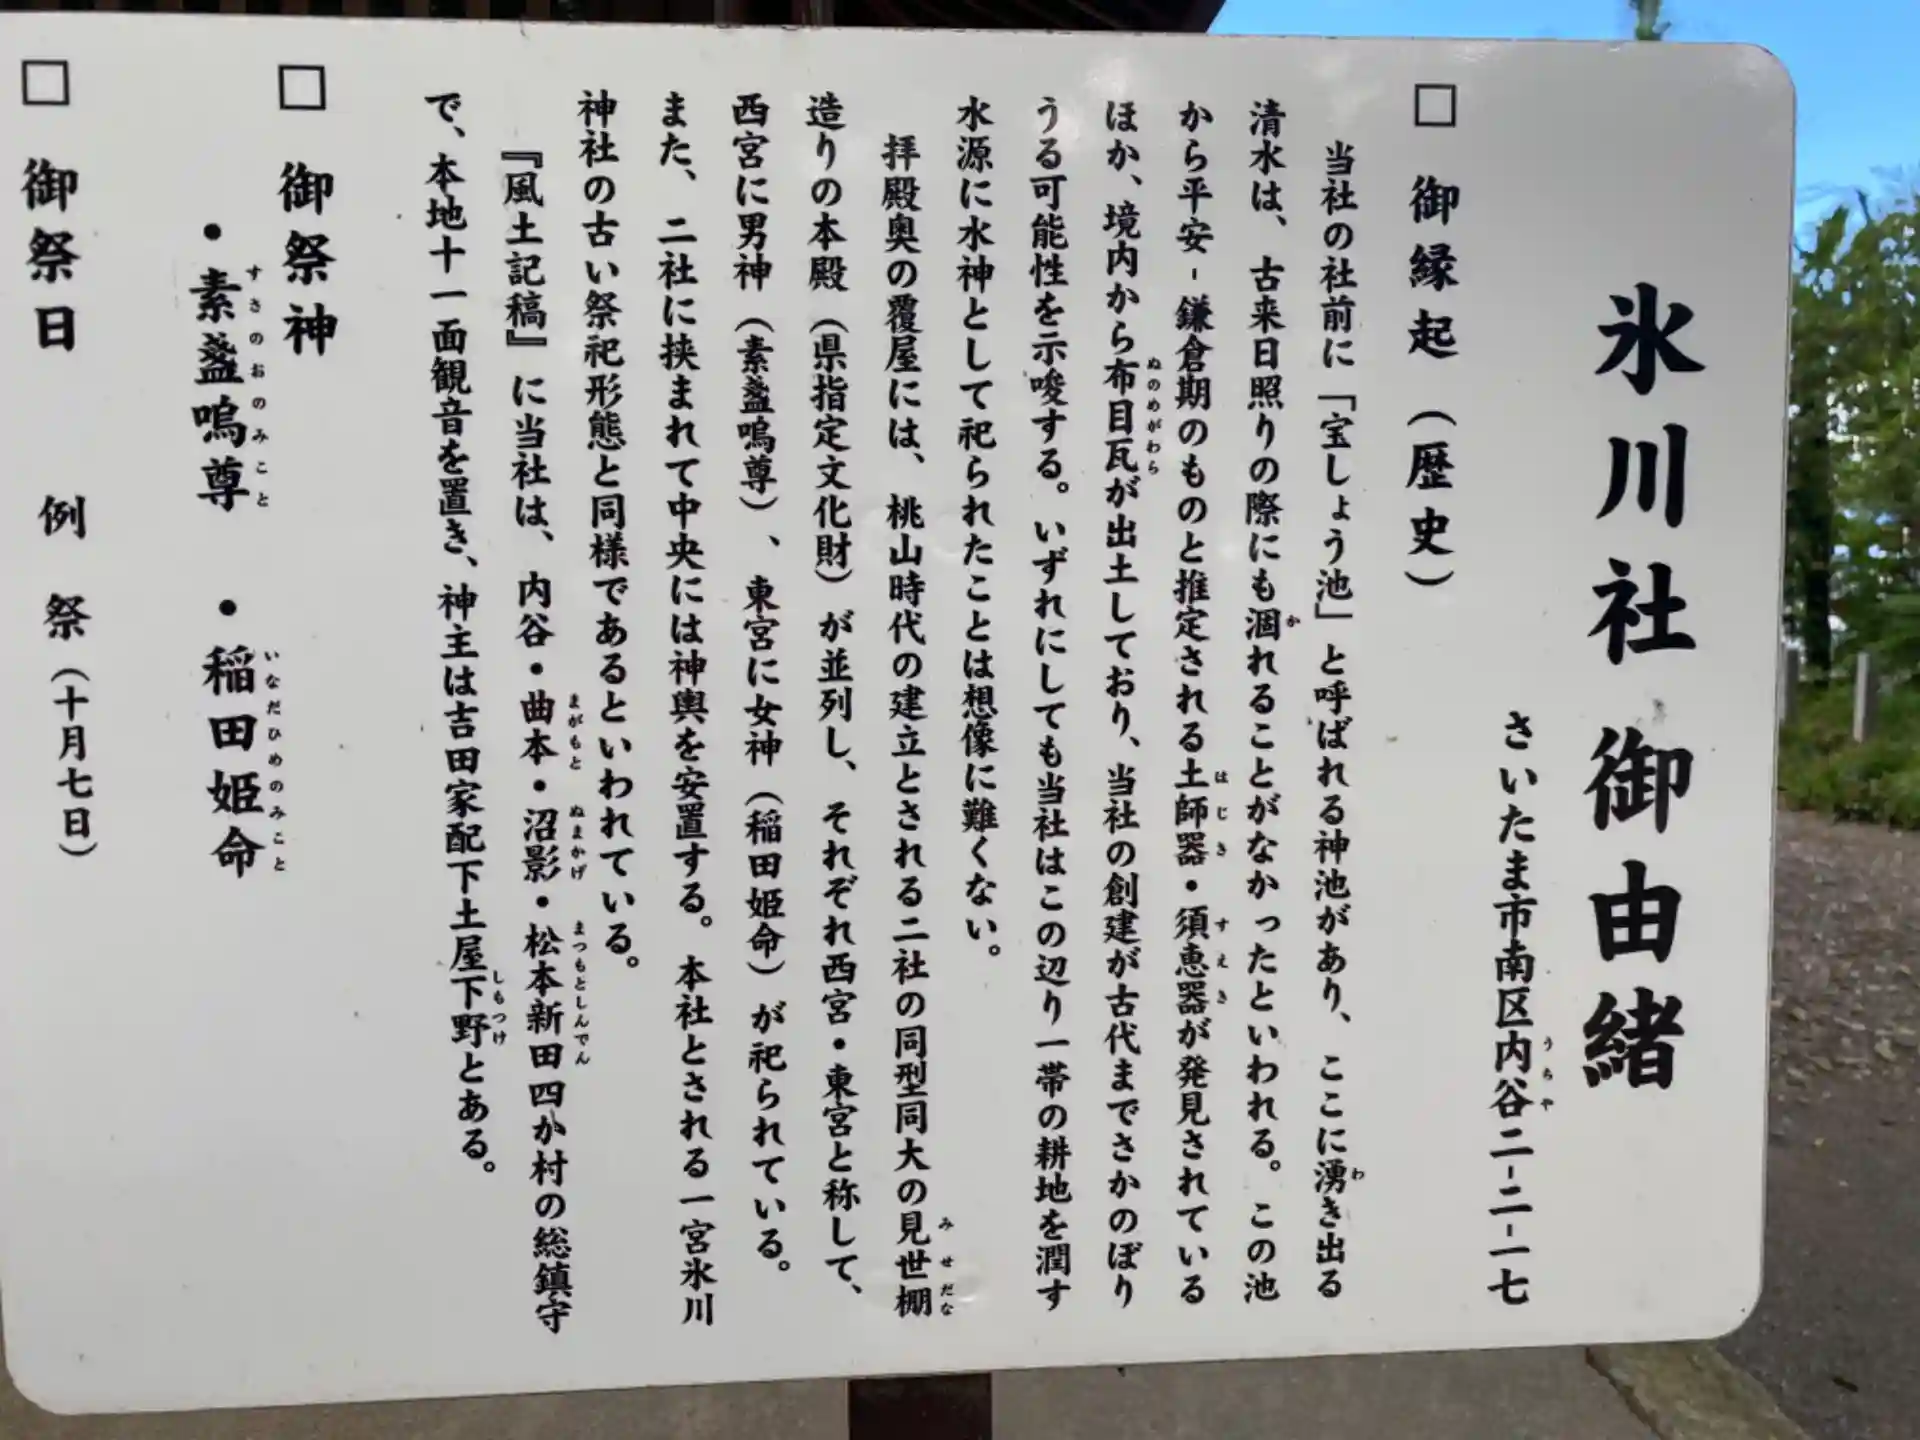 氷川社 御由緒
さいたま市南区内谷二-二-一七
うちや
□ 御縁起（歴史）
当社の社前に「宝しょう池」と呼ばれる神池があり、ここに湧き出る
わ
清水は、古来日照りの際にも涸れることがなかったといわれる。この池
か
から平安-鎌倉期のものと推定される土師器・須恵器が発見されている
はじき すえき
ほか、境内から布目瓦が出土しており、当社の創建が古代までさかのぼり
ぬのめがわら
うる可能性を示唆する。いずれにしても当社はこの辺り一帯の耕地を潤す
水源に水神として祀られたことは想像に難くない。
拝殿奥の覆屋には、桃山時代の建立とされる二社の同型同大の見世棚
みせだな
造りの本殿（県指定文化財）が並列し、それぞれ西宮・東宮と称して、
西宮に男神（素盞嗚尊）、東宮に女神（稲田姫命）が祀られている。
また、二社に挟まれて中央には神輿を安置する。本社とされる一宮氷川
神社の古い祭祀形態と同様であるといわれている。
『風土記稿』に当社は、内谷・曲本・沼影・松本新田四か村の総鎮守
まがもと ぬまかげ まつもとしんでん
で、本地十一面観音を置き、神主は吉田家配下土屋下野とある。
しもつけ
□ 御祭神
・素盞嗚尊 ・稲田姫命
すさのおのみこと いなだひめのみこと
□ 御祭日 例 祭（十月七日）